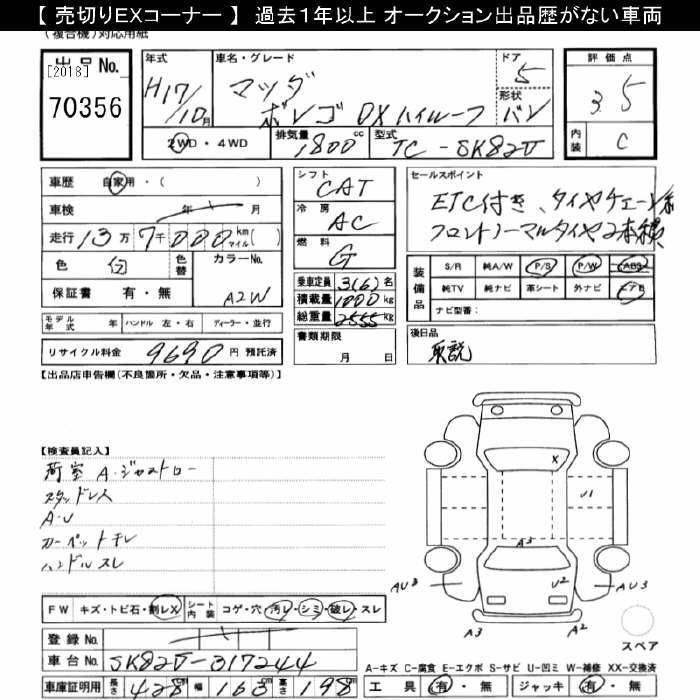 【 売切りEXコーナー 】 過去１年以上 オークション出品歴がない車両
(複合機)対応用紙
出品No. [2018] 70356
年式 H17/10月
車名・グレード マツダ ボンゴ DXハイルーフ
ドア 5
形状 バン
評価点 3.5
内装 C
2WD・4WD
排気量 1800cc
型式 TC-SK82V
車歴 自家用・( )
車検 年 月
走行 13万7千000km マイル( )
色 白 色替 カラーNo. A2W
保証書 有・無
モデル年式 年 ハンドル 左・右 ディーラー・並行
リサイクル料金 9690円 預託済
シフト CAT
冷房 AC
燃料 G
乗車定員 3(6)名
積載量 1000kg
総重量 2555kg
書類期限
月 日
セールスポイント
ETC付き、タイヤチェーン有
フロントノーマルタイヤ2本積
装備品 S/R 純A/W P/S P/W ABS
純TV 純ナビ 革シート 外ナビ エアB
ナビ型番:
後日品
取説
【出品店申告欄(不良箇所・欠品・注意事項等)】
【検査員記入】
荷室 A・ジャストロー
スタッドレス
A・U
カーペットヨレ
ハンドルスレ
X
U1
A3
U2
AU3
AU3
A3
A2
スペア
FW キズ・トビ石・割レX シート内装 コゲ・穴・汚レ・シミ・破レ・スレ
登録No.
車台No. SK82V-317244
車庫証明用 長さ 428 幅 163 高さ 198
A-キズ C-腐食 E-エクボ S-サビ U-凹ミ W-補修 XX-交換済
工具 有・無 ジャッキ 有・無